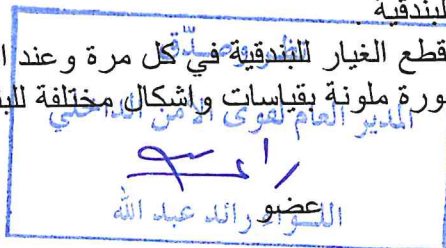 للبندقية
قطع الغيار للبندقية في كل مرة وعند ا
ورة ملونة بقياسات واشكال مختلفة للبن
المدير العام لقوى الامن الداخلي
عضو
اللـواء رائد عبد الله